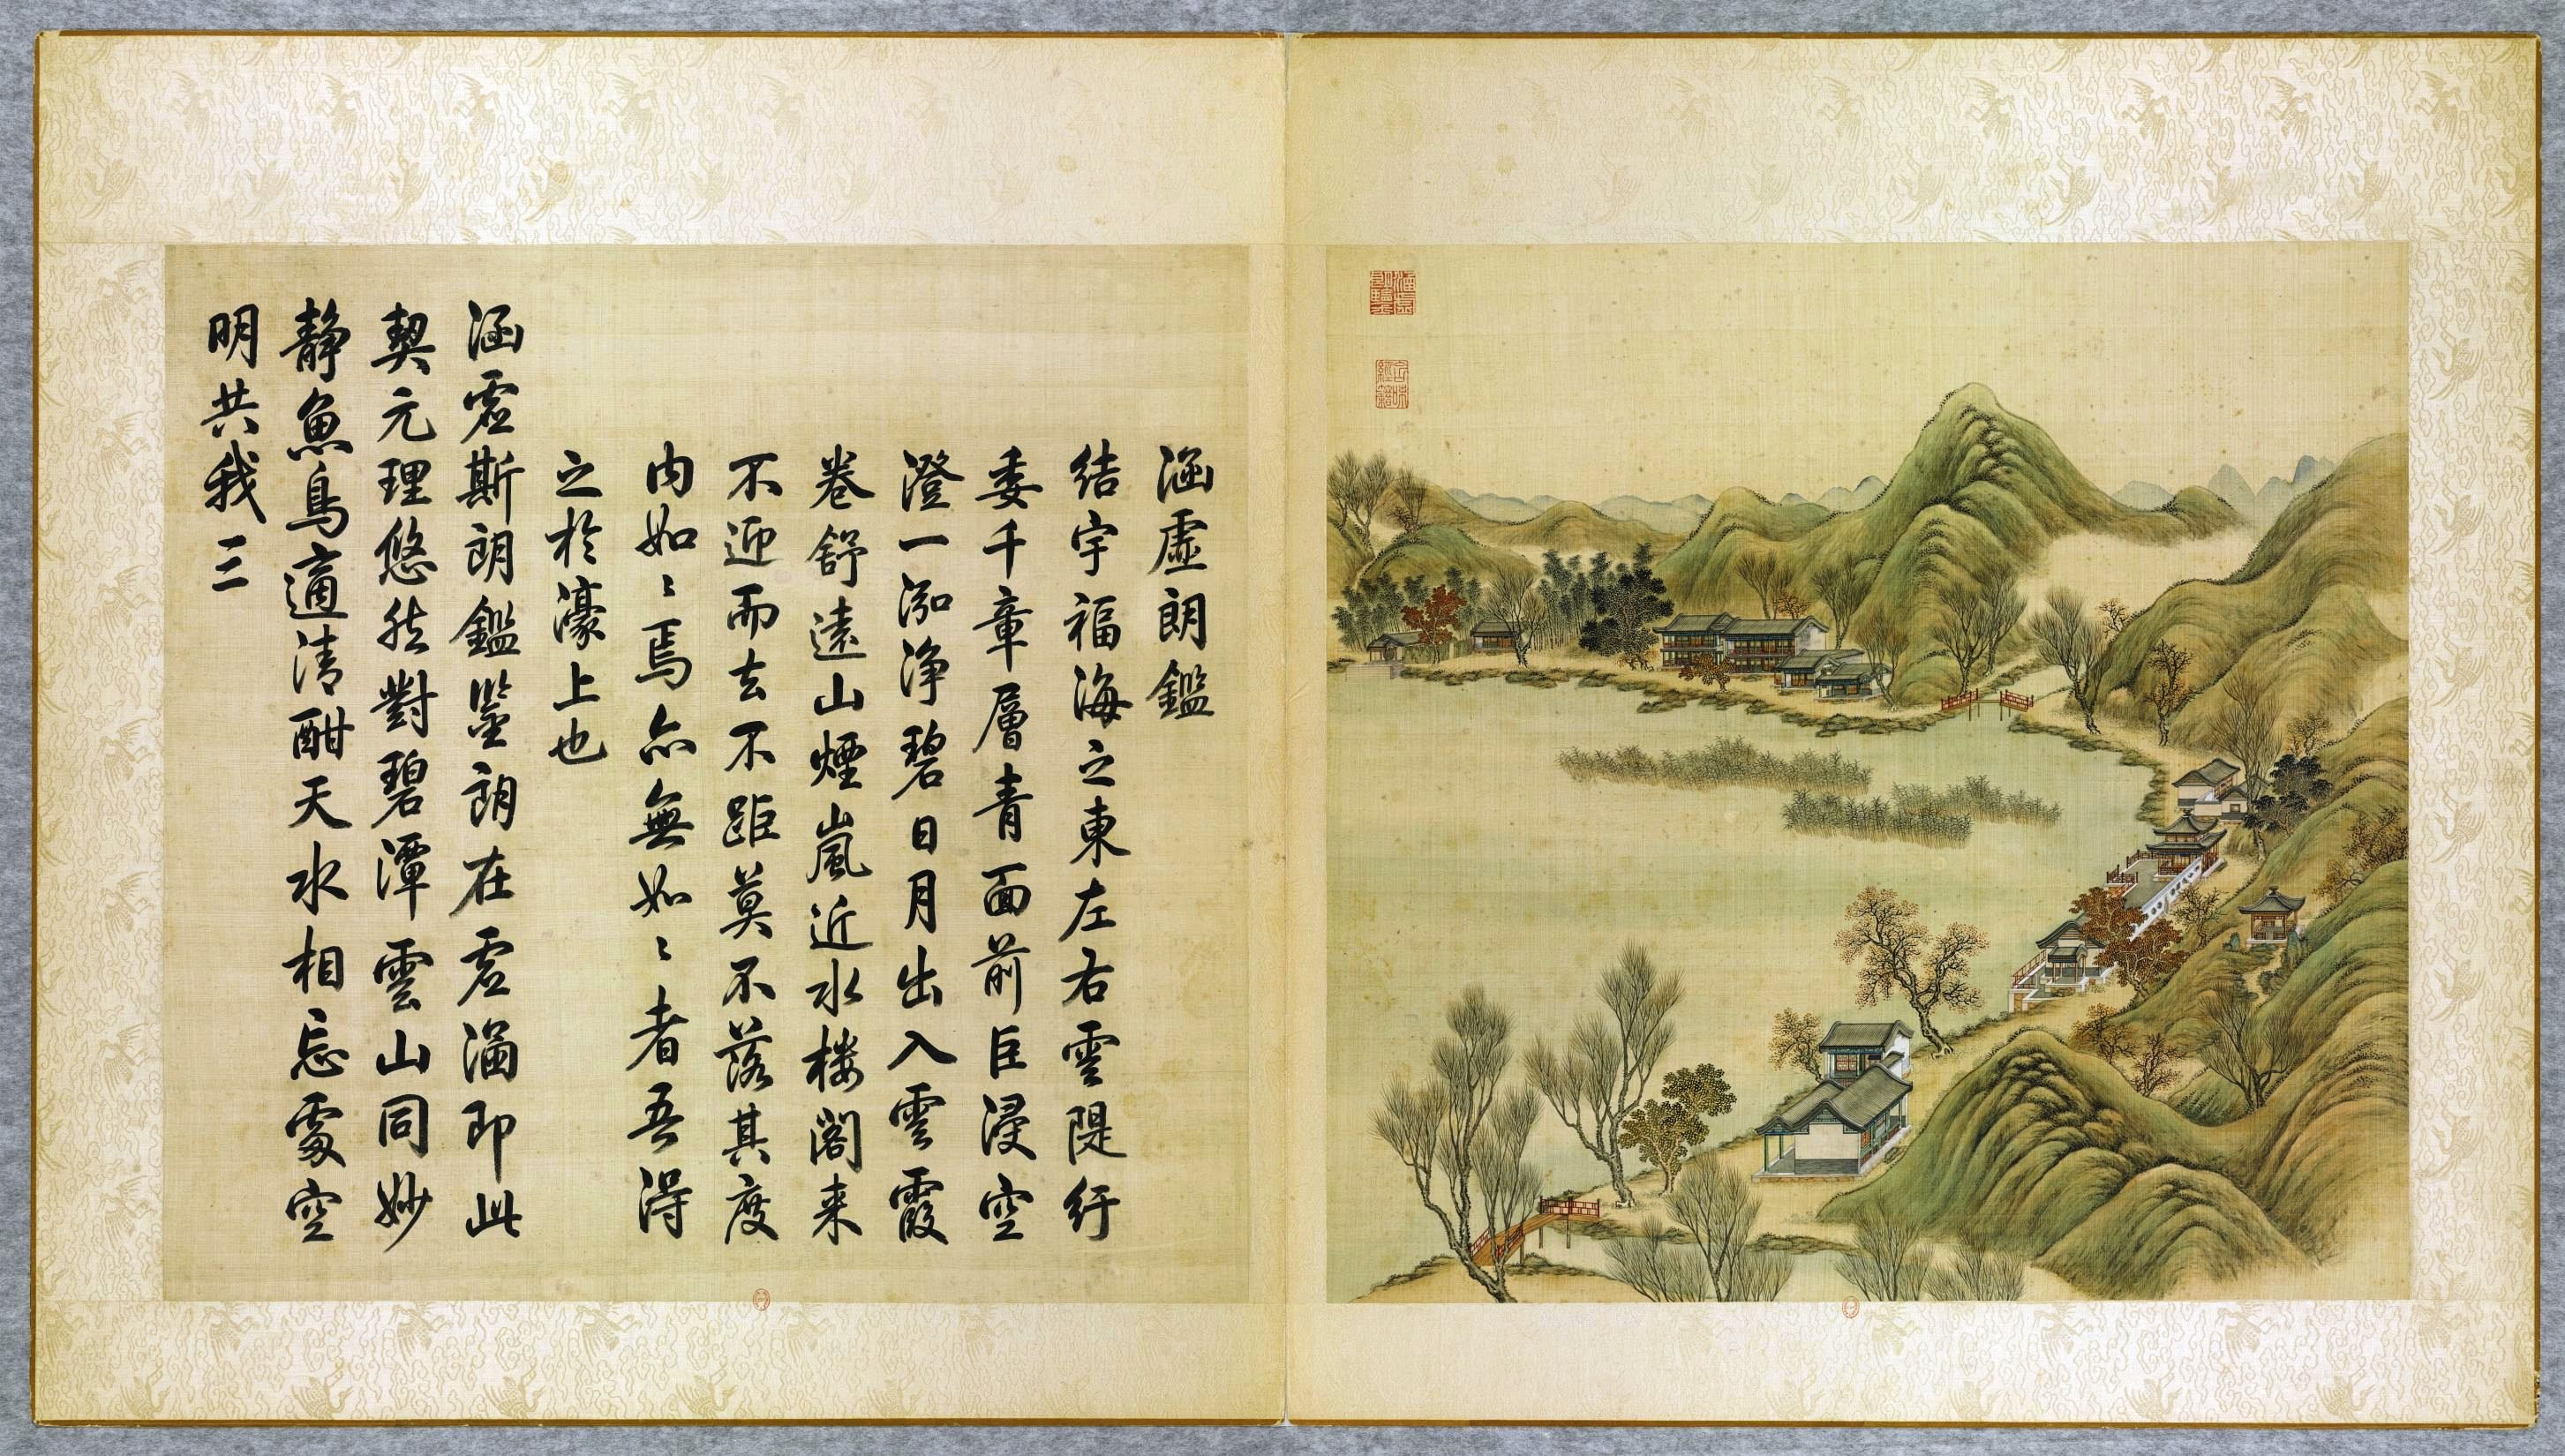 涵虛朗鑑
結宇福海之東左右雲隄行
委千章層青面前巨浸空
澄一泓淨碧日月出入雲霞
卷舒遠山煙嵐近水樓閣来
不迎而去不距莫不落其度
内如〻焉亦無如〻者吾得
之於濠上也
涵虛斯朗鑑鑒朗在虛涵即此
契元理悠然對碧潭雲山同妙
靜魚鳥適清酣天水相忘處空
明共我三